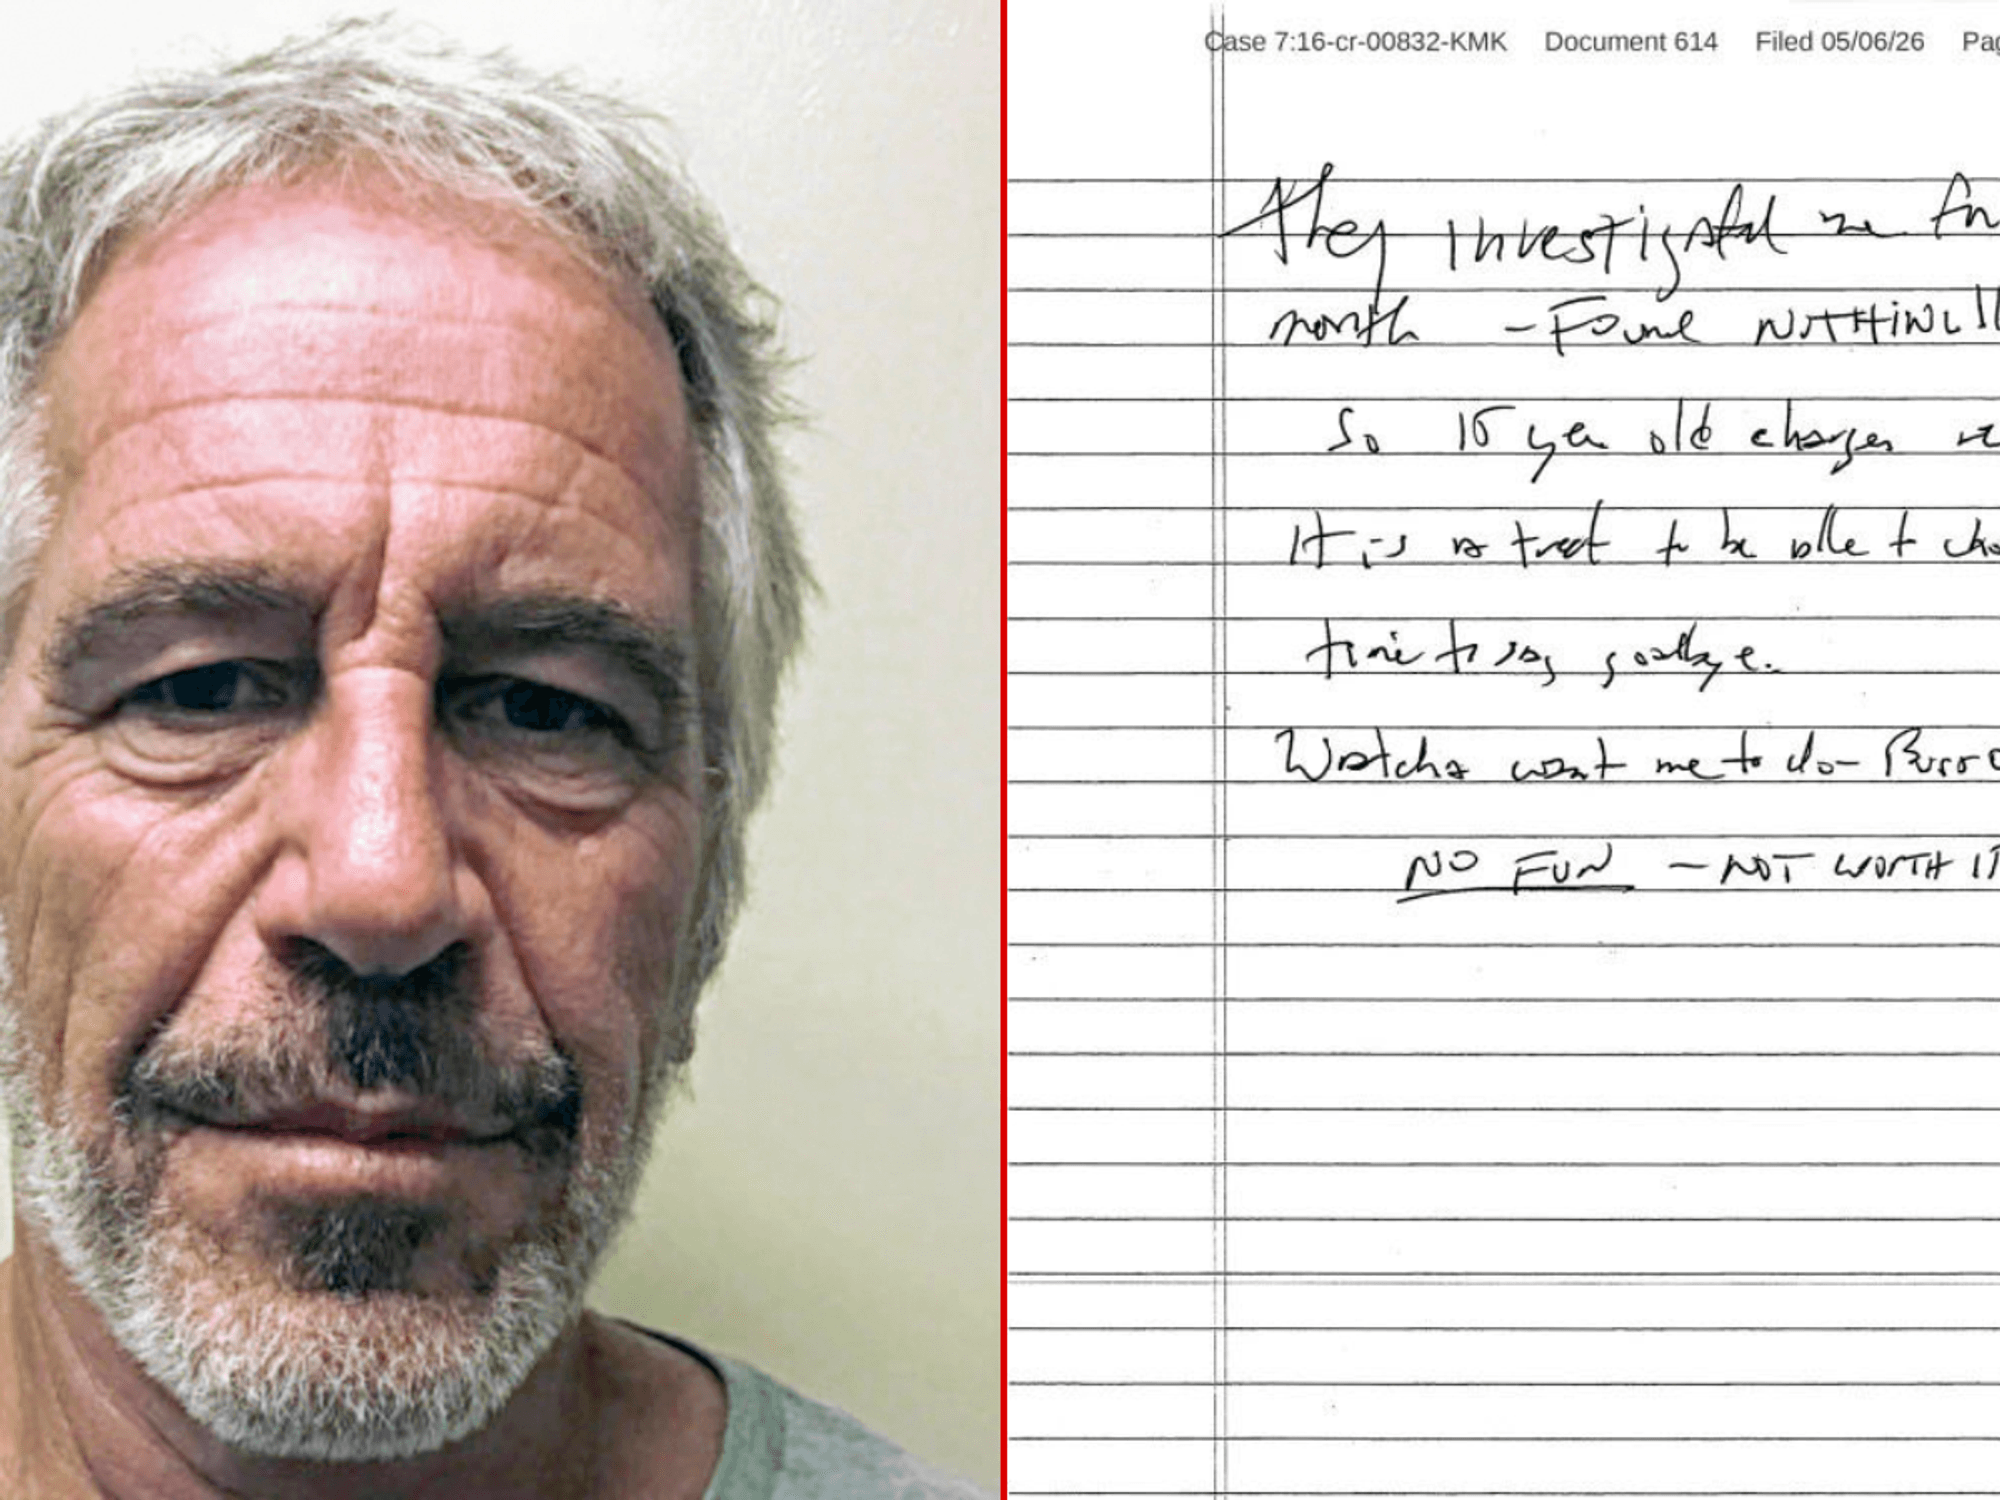 Case 7:16-cr-00832-KMK Document 614 Filed 05/06/26
They investigated me for
month – Found NOTHING!!
So 15 year old charges
It is a treat to be able to
time to say goodbye.
Watcha want me to do –
NO FUN – NOT WORTH IT